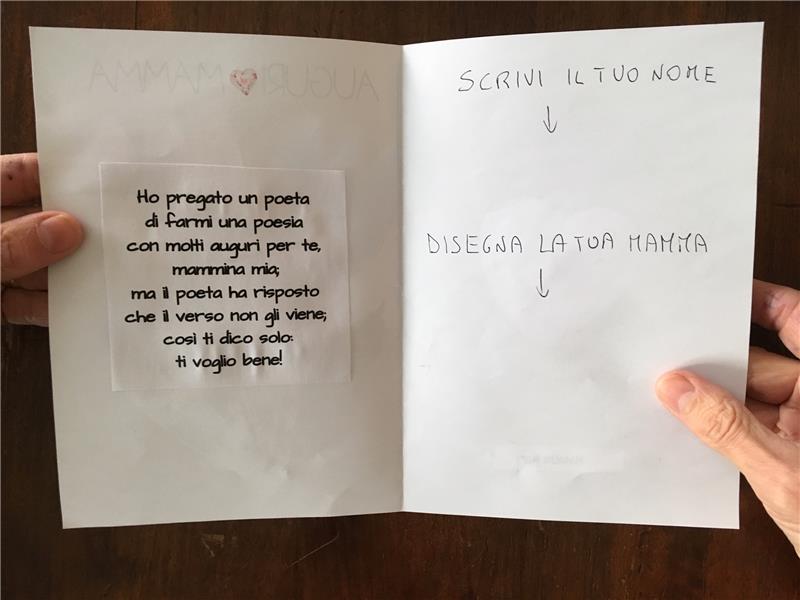 AUGURI MAMMA
Ho pregato un poeta
di farmi una poesia
con molti auguri per te,
mammina mia;
ma il poeta ha risposto
che il verso non gli viene;
così ti dico solo:
ti voglio bene!
SCRIVI IL TUO NOME
DISEGNA LA TUA MAMMA